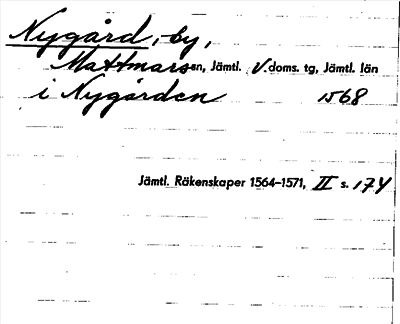 Nygård, by,
Mattmars sn, Jämtl. V. doms. tg, Jämtl. län
i Nygården 1568
Jämtl. Räkenskaper 1564–1571, II s. 174